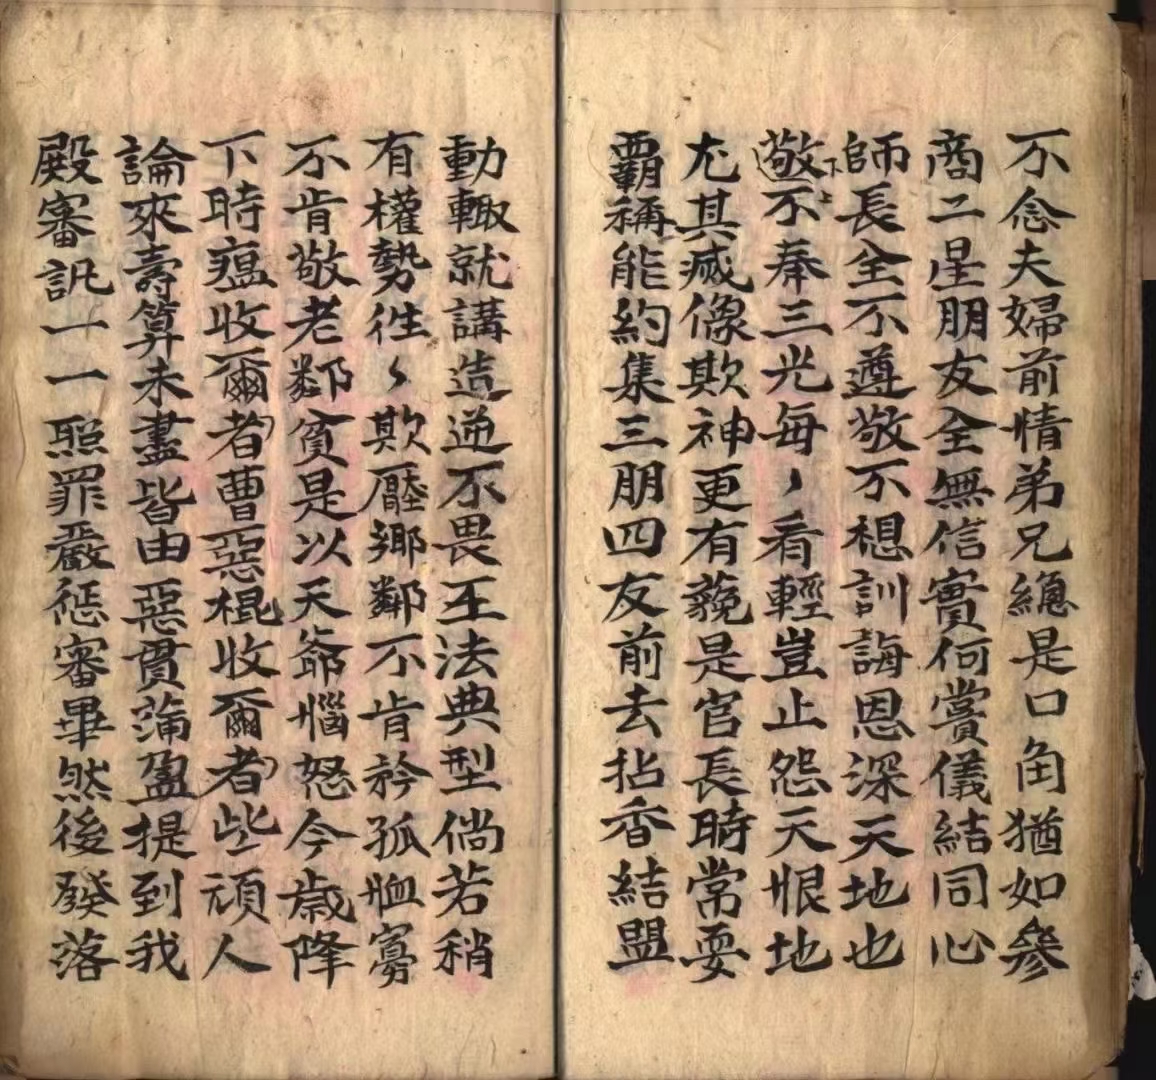 不念夫婦前情弟兄總是口角猶如參
商二星朋友全無信實何嘗儀結同心
師長全不遵敬不想訓誨恩深天地也
敬不奉三光每〻看輕豈止怨天恨地
尤其滅像欺神更有藐是官長時常耍
霸稱能約集三朋四友前去拈香結盟
動輙就講造逆不畏王法典型倘若稍
有權勢徃〻欺壓鄉鄰不肯矜孤恤寡
不肯敬老鄰貧是以天爺惱怒今歲降
下時瘟收爾者曹惡棍收爾者些頑人
論來壽算未盡皆由惡貫滿盈提到我
殿審訊一一照罪嚴懲審畢然後發落